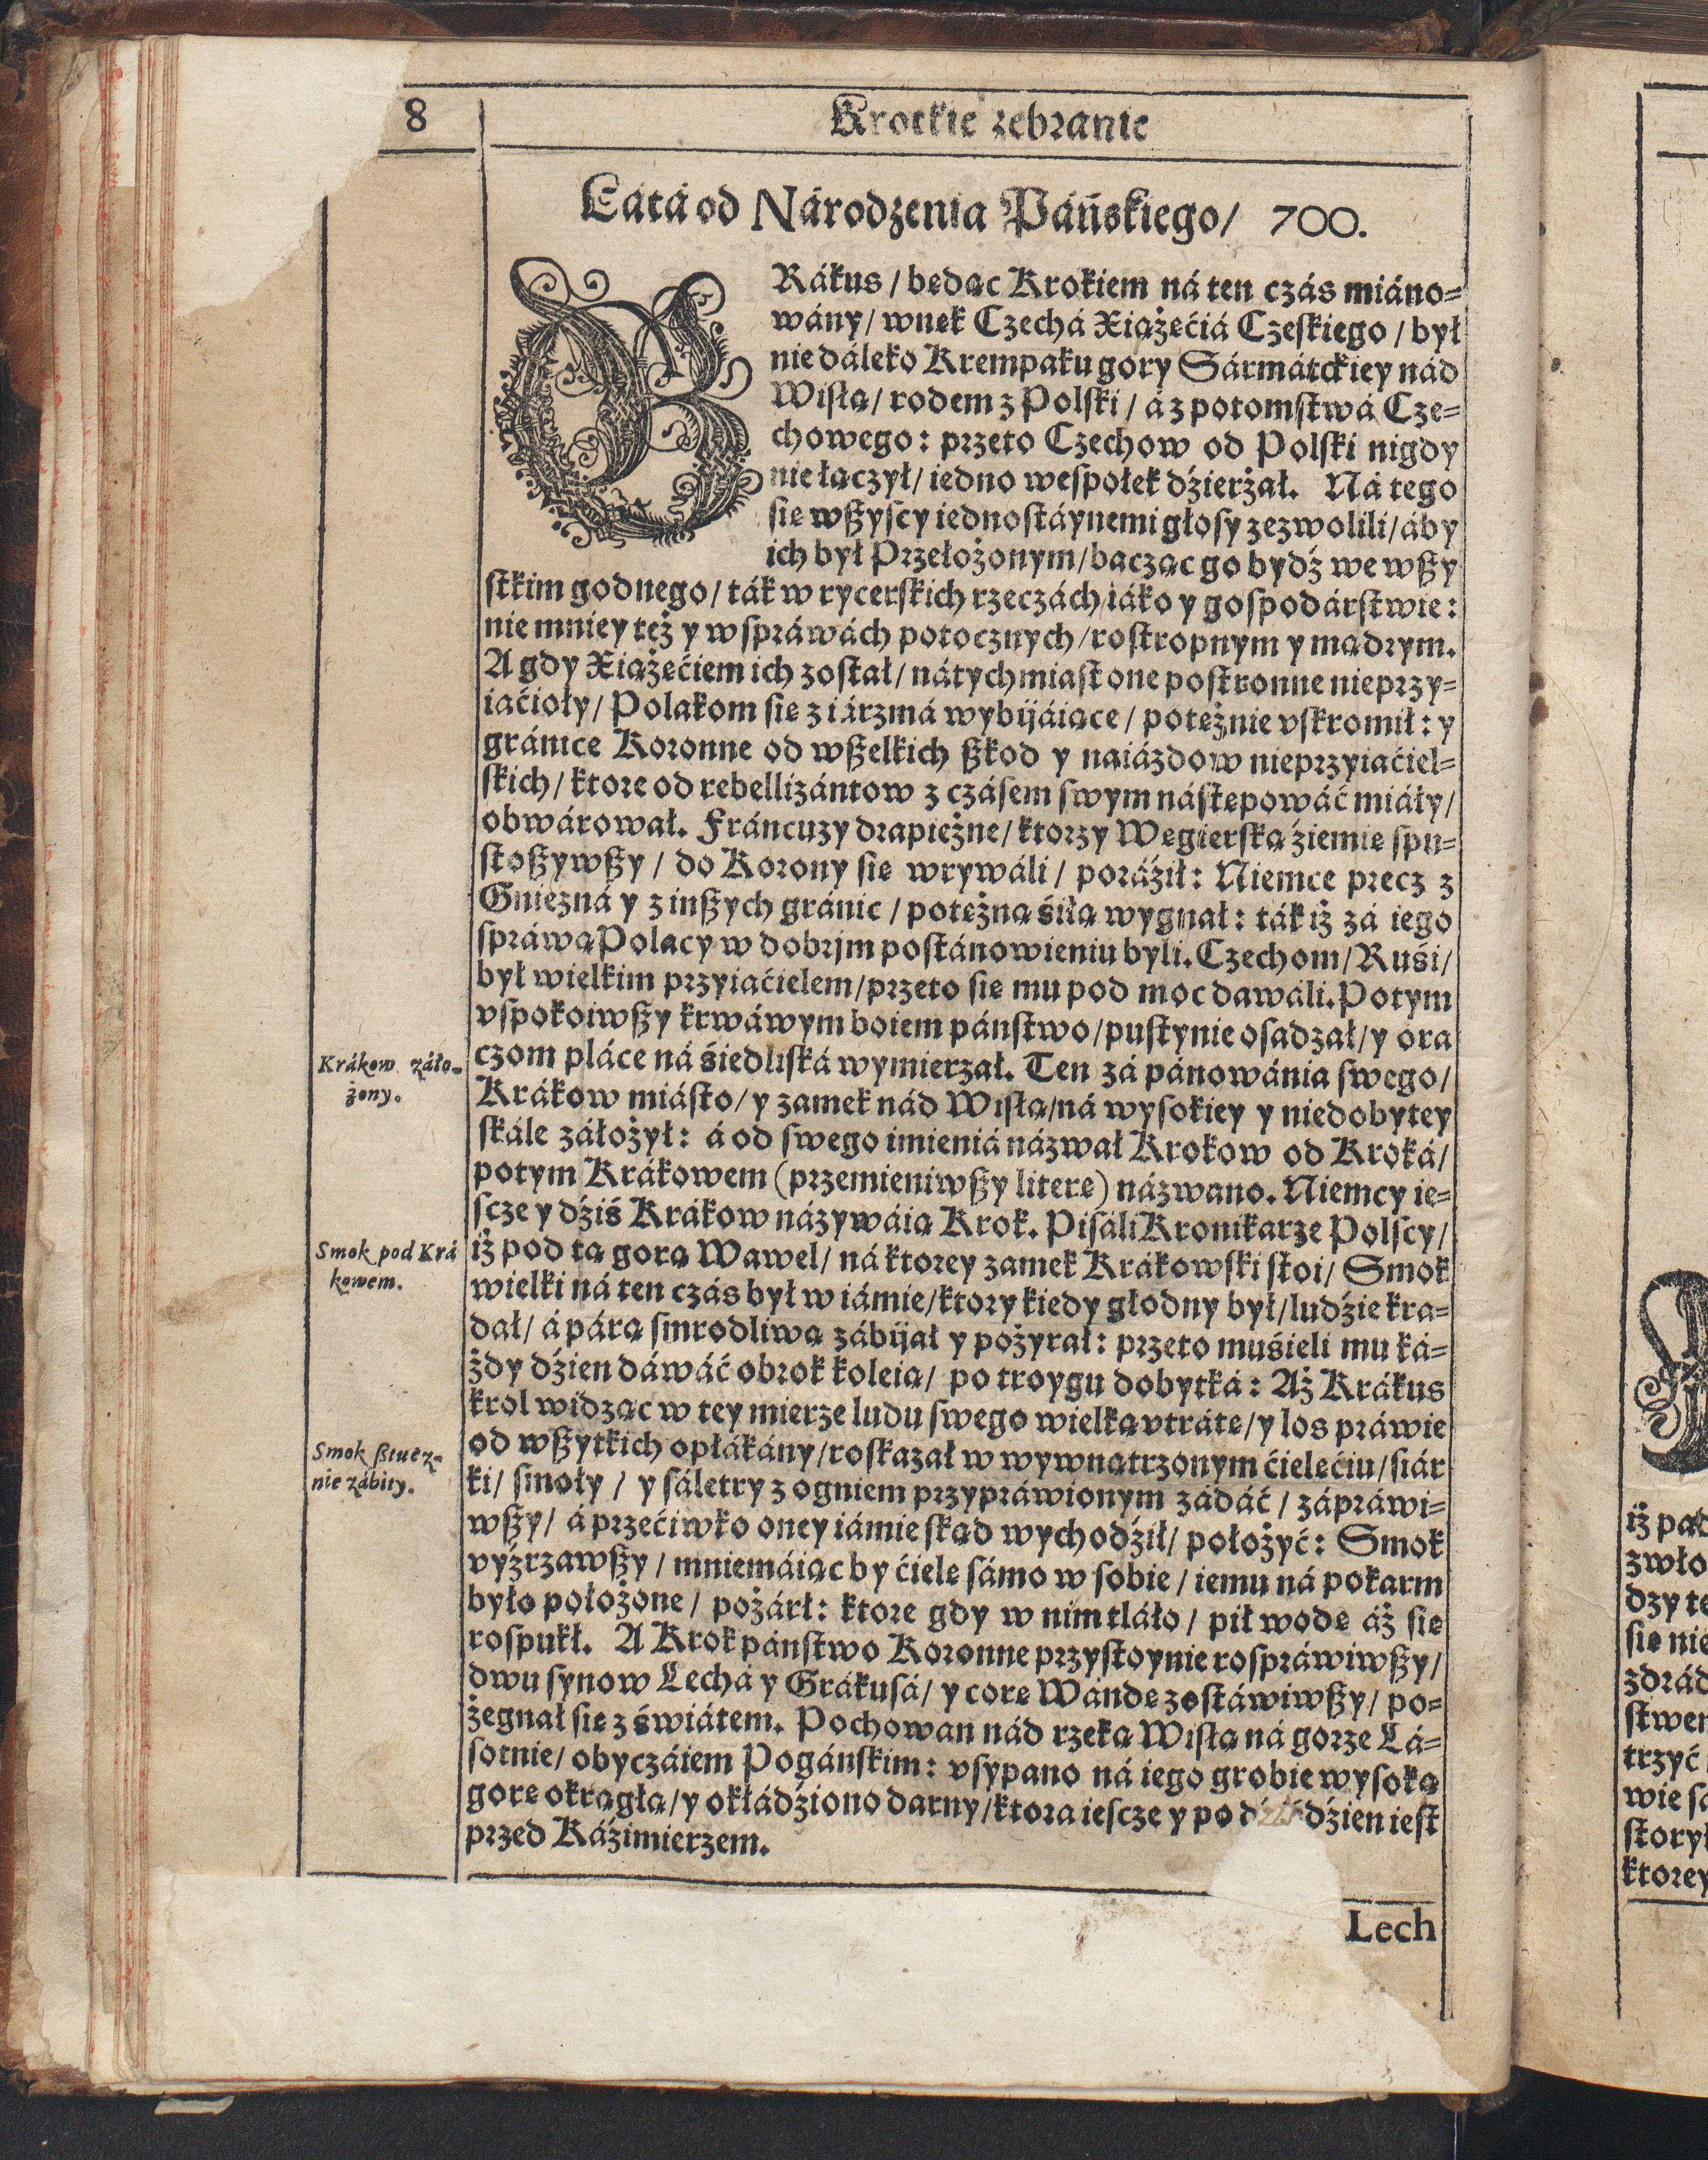 8
Krotkie zebranie
Látá od Národzenia Páńskiego/ 700.
GRákus / będąc Krokiem ná ten czás miáno=
wány / wnęk Czechá Xiążęćiá Czeskiego / był
nie dáleko Krempaku gory Sármátckiey nád
Wisłą / rodem z Polski / á z potomstwá Cze=
chowego : przeto Czechow od Polski nigdy
nie łączył / iedno wespołek dźierżał. Ná tego
się wßyscy iednostáynemi głosy zezwolili / áby
ich był Przełożonym / bacząc go bydź we wßy
stkim godnego / ták w rycerskich rzeczách / iáko y gospodárstwie :
nie mniey też y w spráwách potocznych / rostropnym y mądrym.
A gdy Xiążęćiem ich został / nátychmiast one postronne nieprzy=
iaćioły / Polakom się z iárzmá wybijáiące / potężnie vskromił : y
gránice Koronne od wßelkich ßkod y naiázdow nieprzyiaćiel=
skich / ktore od rebellizántow z czásem swym nástępowáć miáły /
obwárował. Fráncuzy drapieżne / ktorzy Węgierską źiemię spu=
stoßywßy / do Korony się wrywáli / poráźił : Niemce precz z
Gniezná y z inßych gránic / potężną śiłą wygnał : ták iż zá iego
spráwą Polacy w dobrjm postánowieniu byli. Czechom / Ruśi /
był wielkim przyiaćielem / przeto się mu pod moc dawáli. Potym
vspokoiwßy krwáwym boiem páństwo / pustynie osadzał / y ora
czom pláce ná śiedliská wymierzał. Ten zá pánowánia swego /
Krákow miásto / y zamek nád Wisłą / ná wysokiey y niedobytey
skále záłożył : á od swego imieniá názwał Krokow od Kroká /
potym Krákowem (przemieniwßy literę) názwano. Niemcy ie=
scze y dźiś Krákow názywáią Krok. Pisáli Kronikarze Polscy /
iż pod tą gorą Wawel / ná ktorey zamek Krákowski stoi / Smok
wielki ná ten czás był w iámie / ktory kiedy głodny był / ludźie kra=
dał / á párą smrodliwą zábijał y pożyrał : przeto muśieli mu ká=
żdy dźien dáwáć obrok koleią / po troygu dobytká : Aż Krákus
krol widząc w tey mierze ludu swego wielką vtrátę / y los práwie
od wßytkich opłákány / roskazał w wywnątrzonym ćielęćiu / siár
ki / smoły / y sáletry z ogniem przypráwionym zádáć / zápráwi=
wßy / á przećiwko oney iámie skąd wychodźił / położyć : Smok
vyźrzawßy / mniemáiąc by ćielę sámo w sobie / iemu ná pokarm
było położone / pożárł : ktore gdy w nim tláło / pił wodę áż się
rospukł. A Krok páństwo Koronne przystoynie rospráwiwßy /
dwu synow Lechá y Grákusá / y corę Wandę zostáwiwßy / po=
żegnał się z świátem. Pochowan nád rzeką Wisłą ná gorze Lá=
sotnie / obyczáiem Pogánskim : vsypano ná iego grobie wysoką
gorę okrągłą / y okłádźiono darny / ktora iescze y po dźiś dźien iest
przed Káźimierzem.
Lech
Krákow záło-
żony.
Smok pod Krá
kowem.
Smok ßtucz-
nie zábity.
iż pad
zwło
dzy te
się nie
zdrád
stwem
trzyć
wie są
storył
ktorey